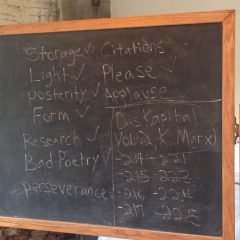 Storage✓ Citations
Light✓ Please✓
Posterity✓ Applause
Form✓
Das Kapital
Research✓ Vol. 2, K. Marx)
Bad Poetry✓
-214 -221
-215 -222
perseverance✓
-216 -224
-217 -225